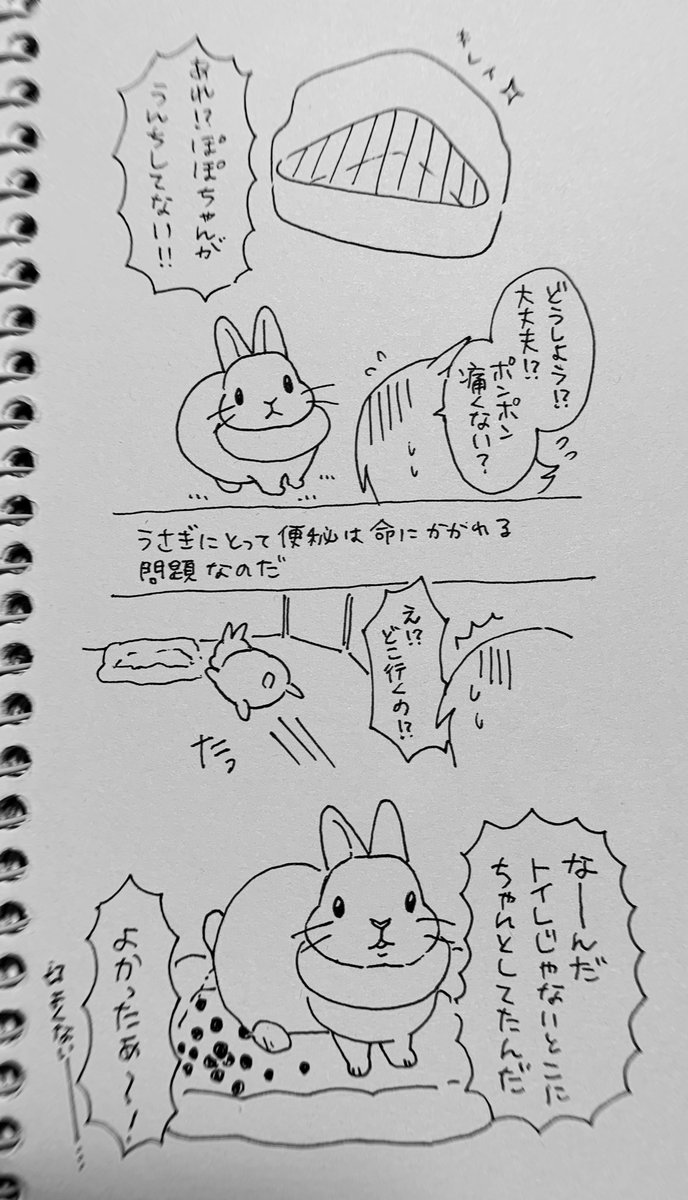 キレイ
あれ!?ぽぽちゃんが
うんちしてない!!
どうしよう!?
大丈夫!?
ポンポン
痛くない?
うさぎにとって便秘は命にかかわる
問題なのだ
え!?
どこ行くの!?
たっ
なーんだ
トイレじゃないとこに
ちゃんとしてたんだ
よかったぁ〜!
よくない